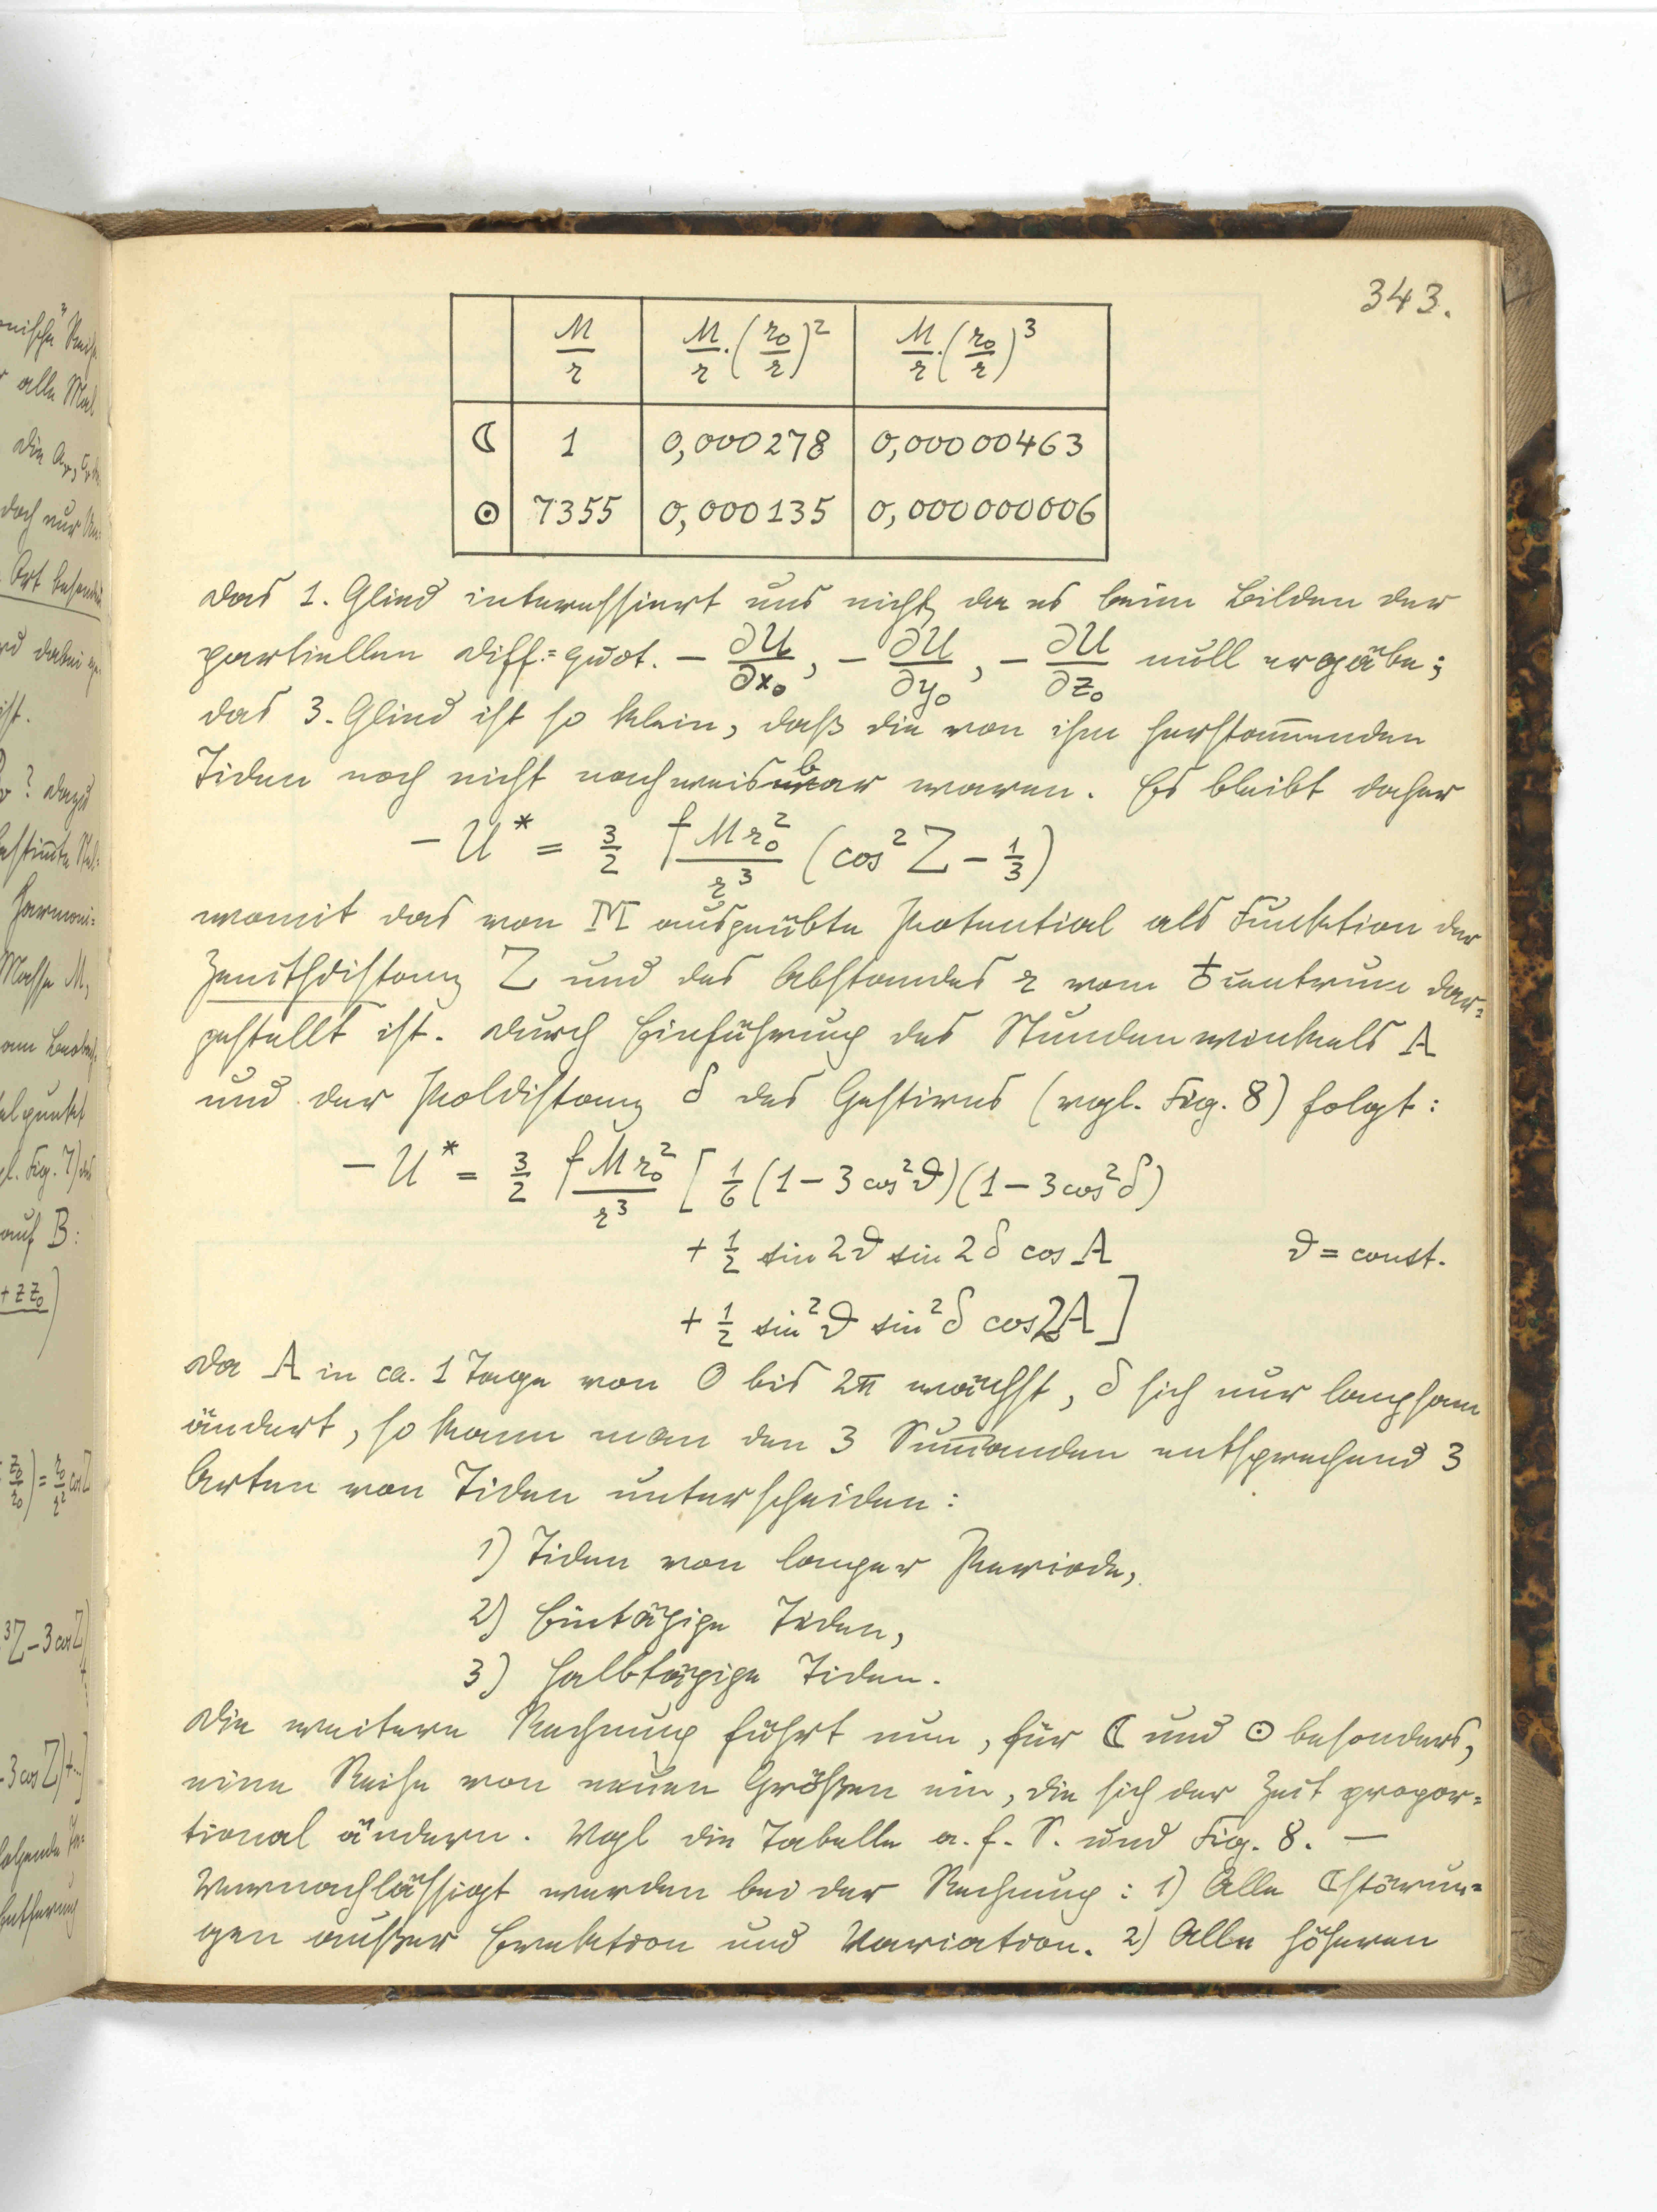 343.
M/r | M/r·(r₀/r)² | M/r·(r₀/r)³
☾ | 1 | 0,000278 | 0,00000463
☉ | 7355 | 0,000135 | 0,000000006
Das 1. Glied interessiert uns nicht, da es beim Bilden der
partiellen Diff.=quot. − ∂U/∂x₀, − ∂U/∂y₀, − ∂U/∂z₀ null ergäbe;
das 3. Glied ist so klein, daß die von ihm herstam̅enden
Tiden noch nicht nachweisbar waren. Es bleibt daher
− U* = 3/2 fMr₀²/r³ (cos² Z − 1/3)
womit das von M ausgeübte Potential als Funktion der
Zenithdistanz Z und des Abstandes r vom ♁zentrum dar=
gestellt ist. Durch Einführung des Stundenwinkels A
und der Poldistanz δ des Gestirns (vgl. Fig. 8) folgt:
− U* = 3/2 fMr₀²/r³ [ 1/6 (1 − 3 cos²ϑ)(1 − 3 cos²δ)
+ 1/2 sin 2ϑ sin 2δ cos A ϑ = const.
+ 1/2 sin²ϑ sin²δ cos 2A ]
Da A in ca. 1 Tage von 0 bis 2π wächst, δ sich nur langsam
ändert, so kann man den 3 Sum̅anden entsprechend 3
Arten von Tiden unterscheiden:
1) Tiden von langer Periode,
2) Eintägige Tiden,
3) Halbtägige Tiden.
Die weitere Rechnung führt nun, für ☾ und ☉ besonders,
eine Reihe von neuen Größen ein, die sich der Zeit propor=
tional ändern. Vgl die Tabelle a. f. S. und Fig. 8. —
Vernachlässigt werden bei der Rechnung: 1) Alle ☾störun=
gen außer Evektion und Variation. 2) Alle höheren